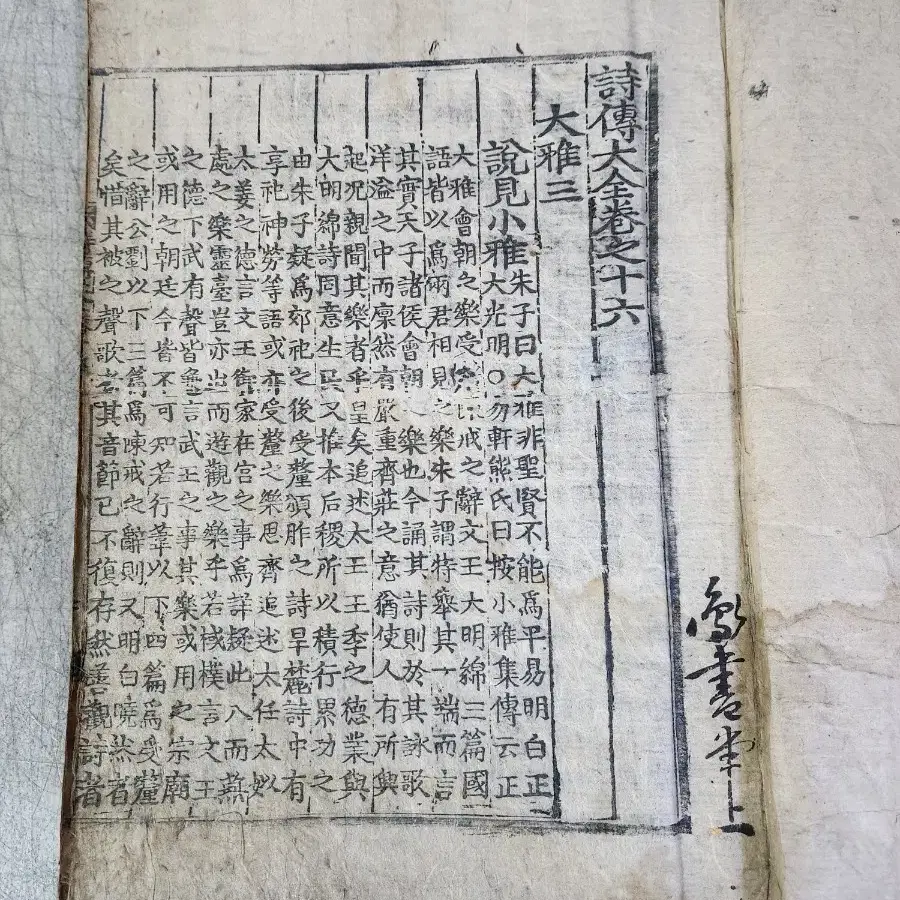 詩傳大全卷之十六
大雅三
說見小雅朱子曰大雅非聖賢不能爲平易明白正
大光明○勿軒熊氏曰按小雅集傳云正
大雅會朝之樂受戒之辭文王大明綿三篇國
語皆以爲兩君相見之樂朱子謂特舉其一端而言
其實天子諸侯會朝之樂也今誦其詩則於其詠歌
洋溢之中而凜然有嚴重齊莊之意猶使人有所興
起况親聞其樂者乎皇矣追述太王王季之德業與
大明綿詩同意生民又推本后稷所以積行累功之
由朱子疑爲郊祀之後受釐頒胙之詩旱麓詩中有
享祀神勞等語或亦受釐之樂思齊追述太任太姒
太姜之德言文王御家在宮之事爲詳疑此入而燕
處之樂靈臺豈亦出而遊觀之樂乎若棫樸言文王
之德下武有聲皆言武王之事其樂或用之宗廟
或用之朝廷今皆不可知若行葦以下四篇爲受釐
之辭公劉以下三篇爲陳戒之辭則又明白曉然者
矣惜其被之聲歌者其音節已不復存然善觀詩者
書堂上